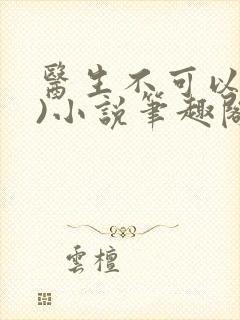 醫生不可以
)小說筆趣閣
雲檀